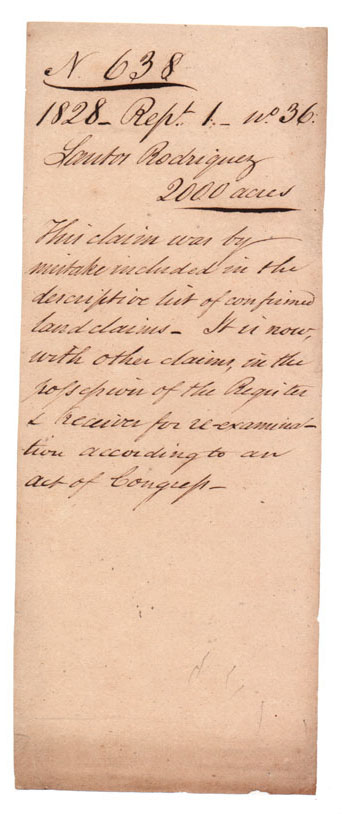 N. 638
1828 - Rept. 1. - no. 36.
Santos Rodriguez
2000 acres
This claim was by
mistake included in the
descriptive list of confirmed
land claims - It is now,
with other claims, in the
possession of the Register
& Receiver for re-examina-
tion according to an
act of Congress -